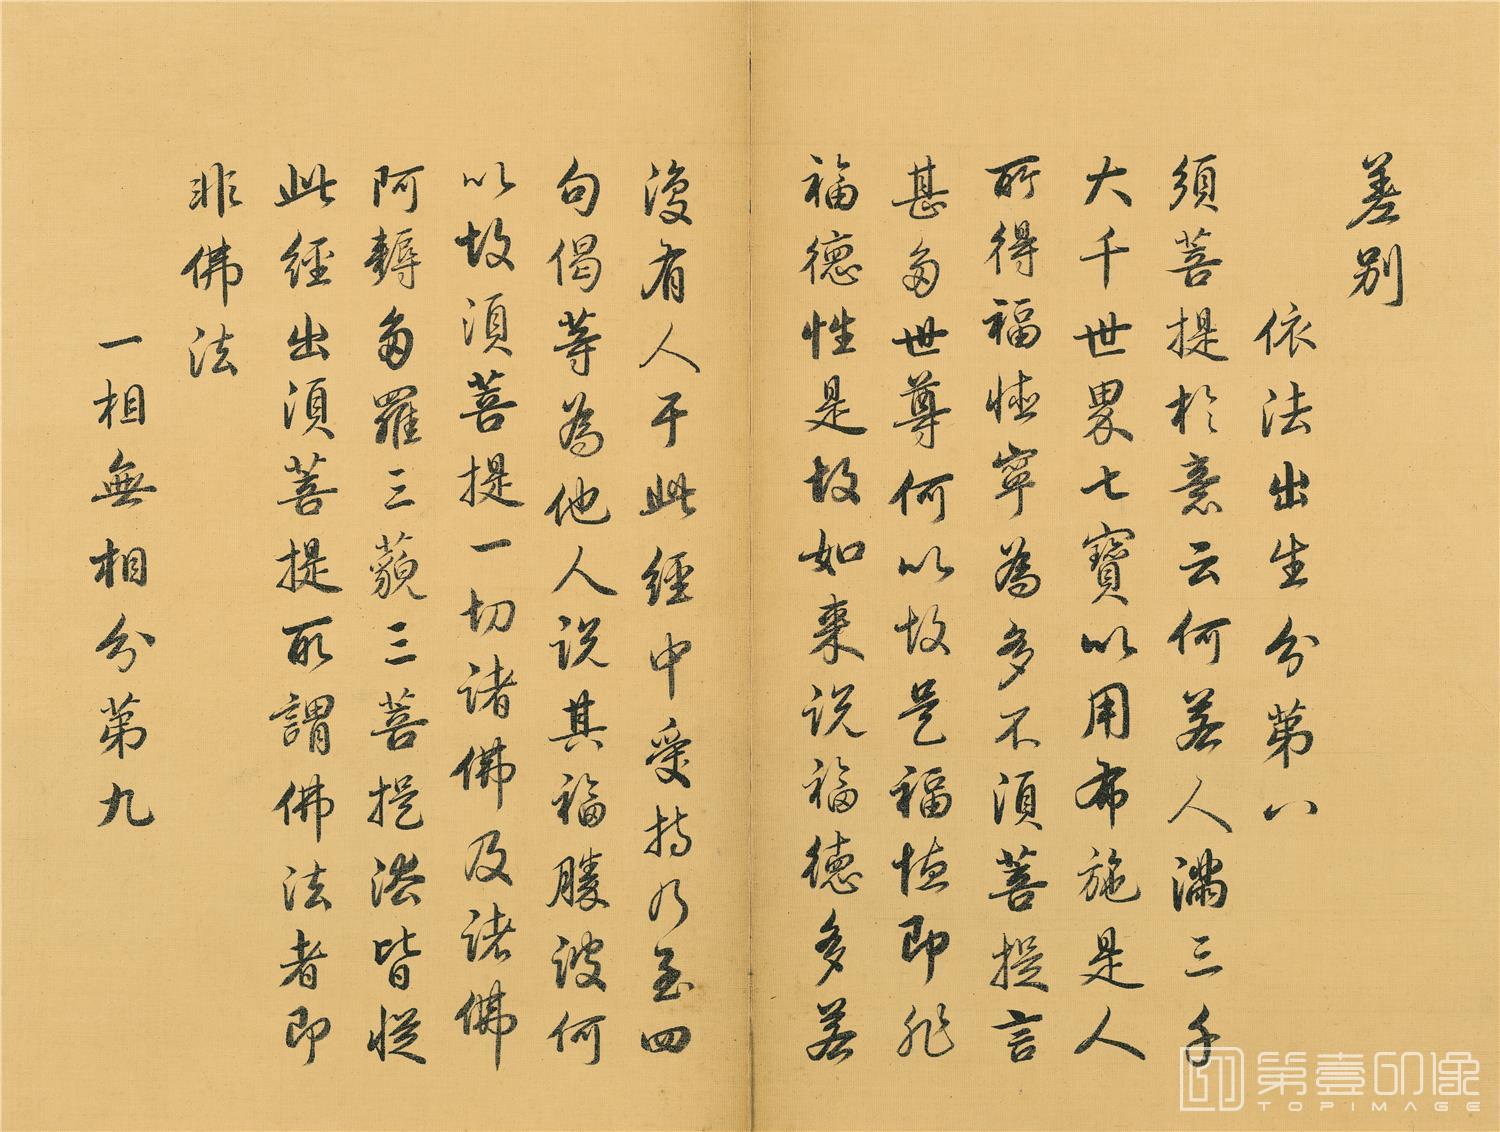 差别
依法出生分第八
須菩提於意云何若人滿三千
大千世界七寶以用布施是人
所得福德寧為多不須菩提言
甚多世尊何以故是福德即非
福德性是故如来说福德多若
復有人于此經中受持乃至四
句偈等為他人说其福勝彼何
以故須菩提一切诸佛及诸佛
阿耨多羅三藐三菩提法皆從
此經出須菩提所謂佛法者即
非佛法
一相無相分第九
第壹印像
TOPIMAGE